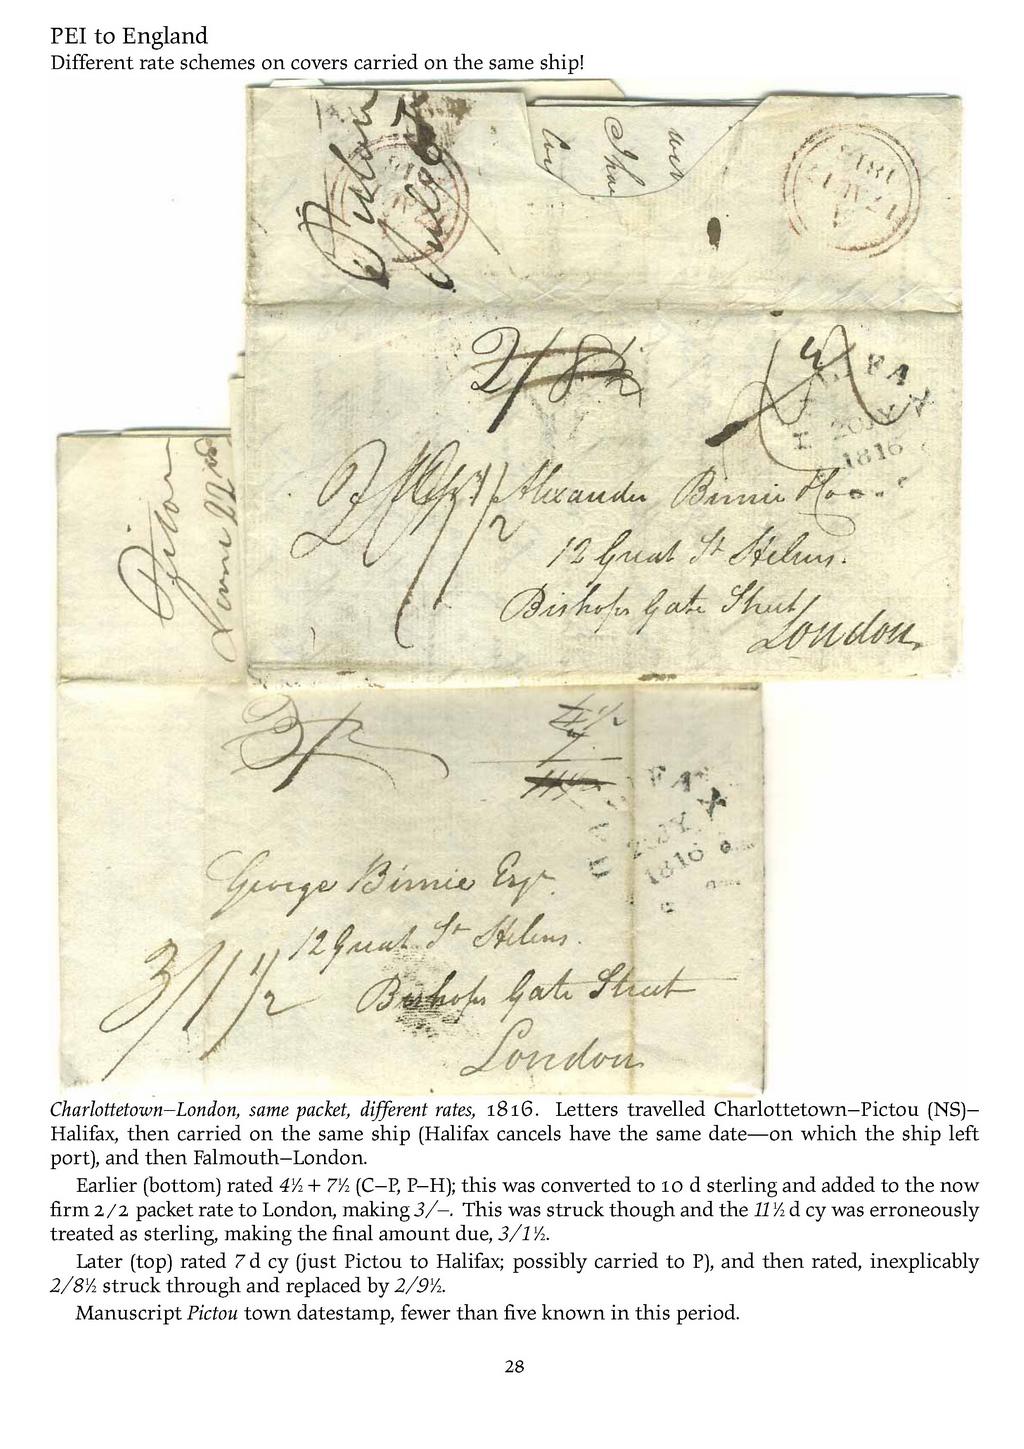 PEI to England
Different rate schemes on covers carried on the same ship!
Pictou
2/8½
HALIFAX
20JY
1816
Alexander Birnie
12 Great St Helens.
Bishops Gate Street
London
Pictou
June 22nd
3/
4½
7
11½
HALIFAX
20JY
1816
George Birnie Esqr
12 Great St Helens.
3/1½
Bishops Gate Street
London
Charlottetown–London, same packet, different rates, 1816. Letters travelled Charlottetown–Pictou (NS)–
Halifax, then carried on the same ship (Halifax cancels have the same date—on which the ship left
port), and then Falmouth–London.
Earlier (bottom) rated 4½ + 7½ (C–P, P–H); this was converted to 10 d sterling and added to the now
firm 2/2 packet rate to London, making 3/–. This was struck though and the 11½ d cy was erroneously
treated as sterling, making the final amount due, 3/1½.
Later (top) rated 7 d cy (just Pictou to Halifax; possibly carried to P), and then rated, inexplicably
2/8½ struck through and replaced by 2/9½.
Manuscript Pictou town datestamp, fewer than five known in this period.
28